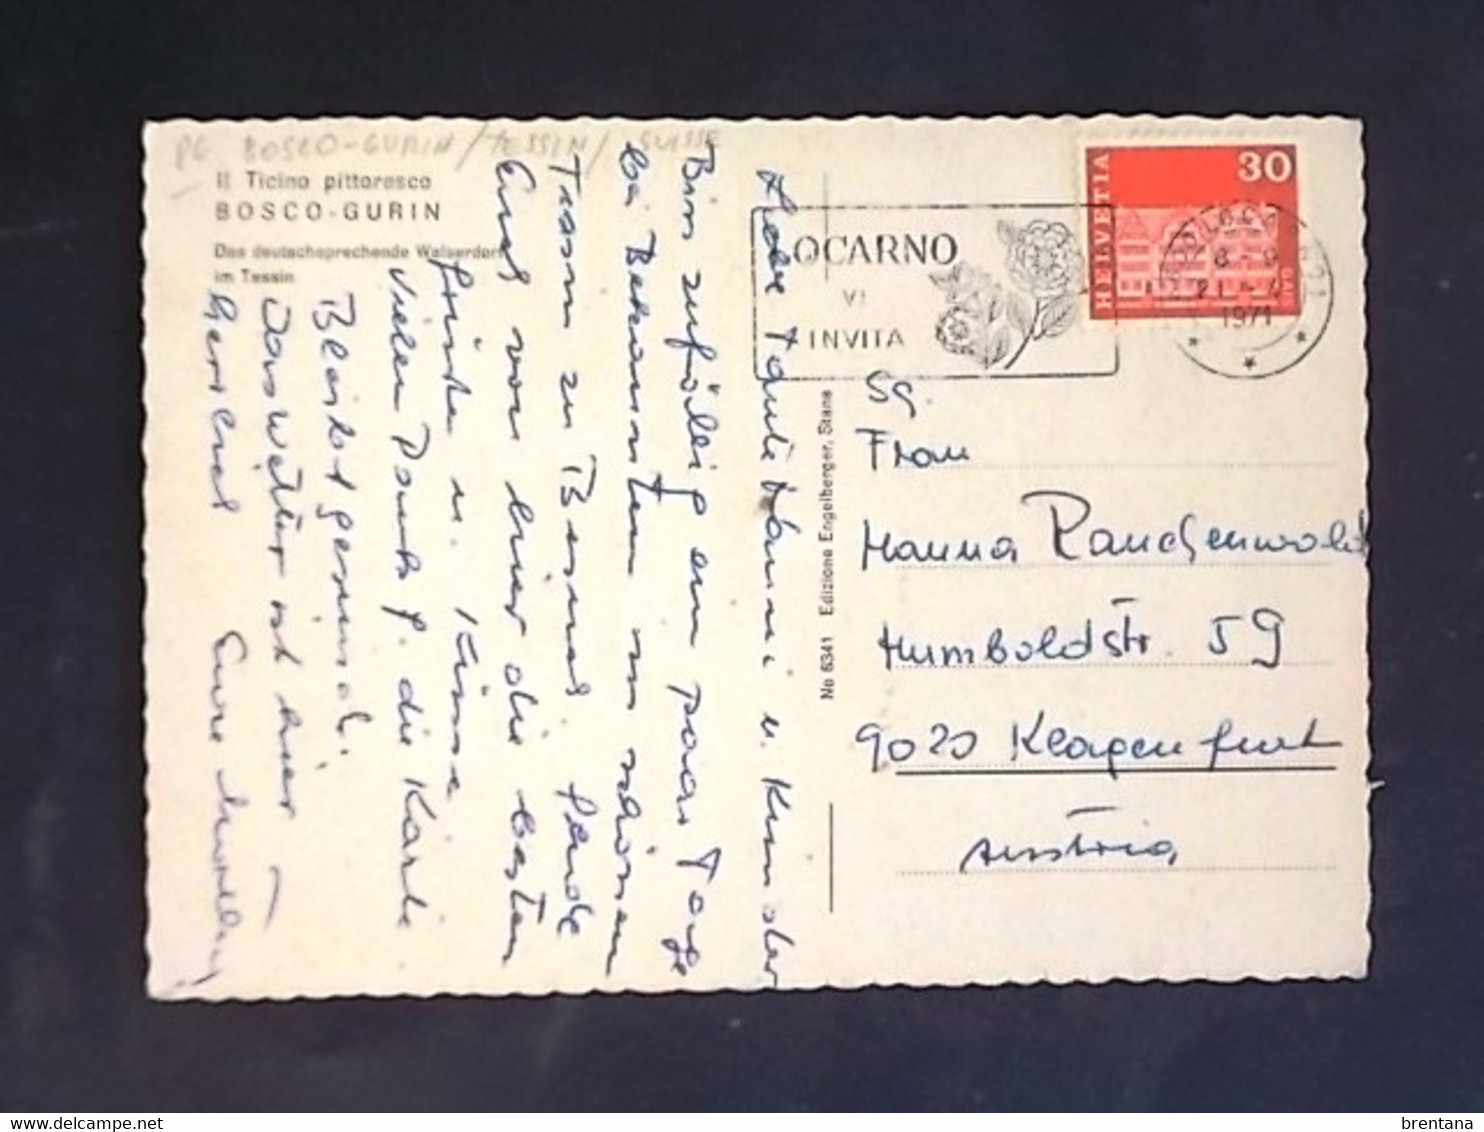 PG BOSCO-GURIN / TESSIN / SUISSE
Il Ticino pittoresco
BOSCO-GURIN
Das deutschsprechende Walserdorf
im Tessin
Liebe Tante Hanni u. Kinder
Bin zufällig ein paar Tage
bei Bekannten im schönen
Tessin zu Besuch. Sende
Euch von hier die besten
Grüsse u. Küsse
Vielen Dank f. die Karte
Bleibt gesund.
Das Wetter ist hier
herrlich Eure
No 6341 Edizione Engelberger, Stans
LOCARNO
VI
INVITA
HELVETIA
30
1971
Sg.
Frau
Hanna Rauchenwald
Humboldtstr. 59
9020 Klagenfurt
Austria
brentana